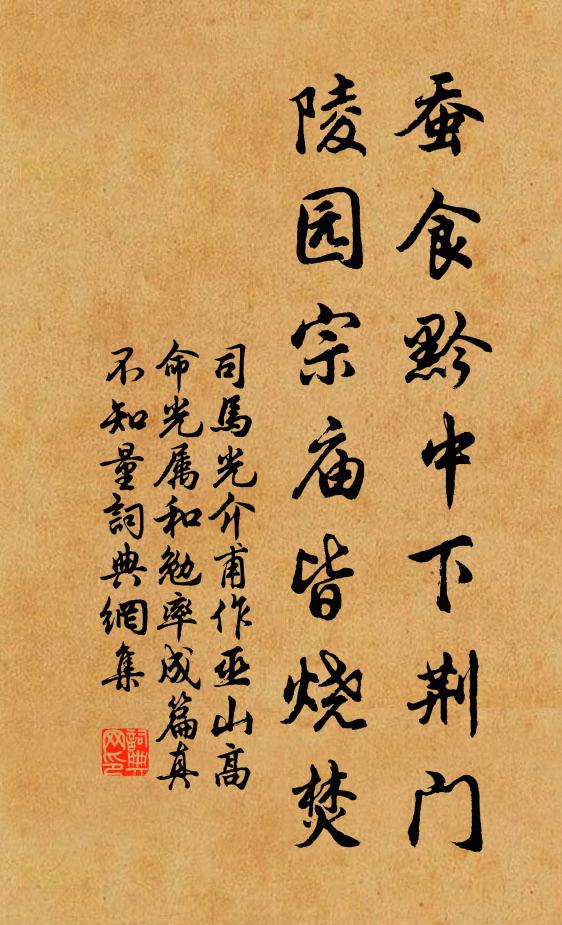 蚕食黔中下荆门
陵园宗庙皆烧焚
司馬光介甫作巫山高
命光属和勉率成篇真
不知量詞典網集
詞典网印